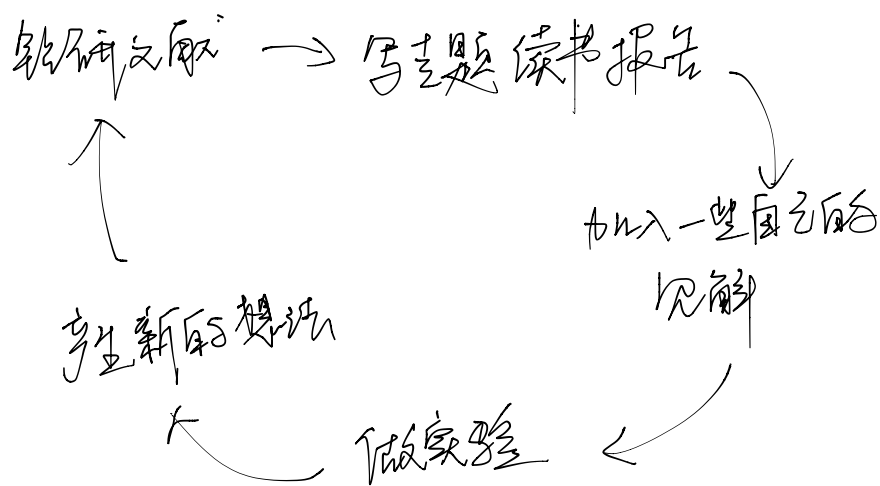 钻研文献
写专题读书报告
加入一些自己的
见解
做实验
产生新的想法